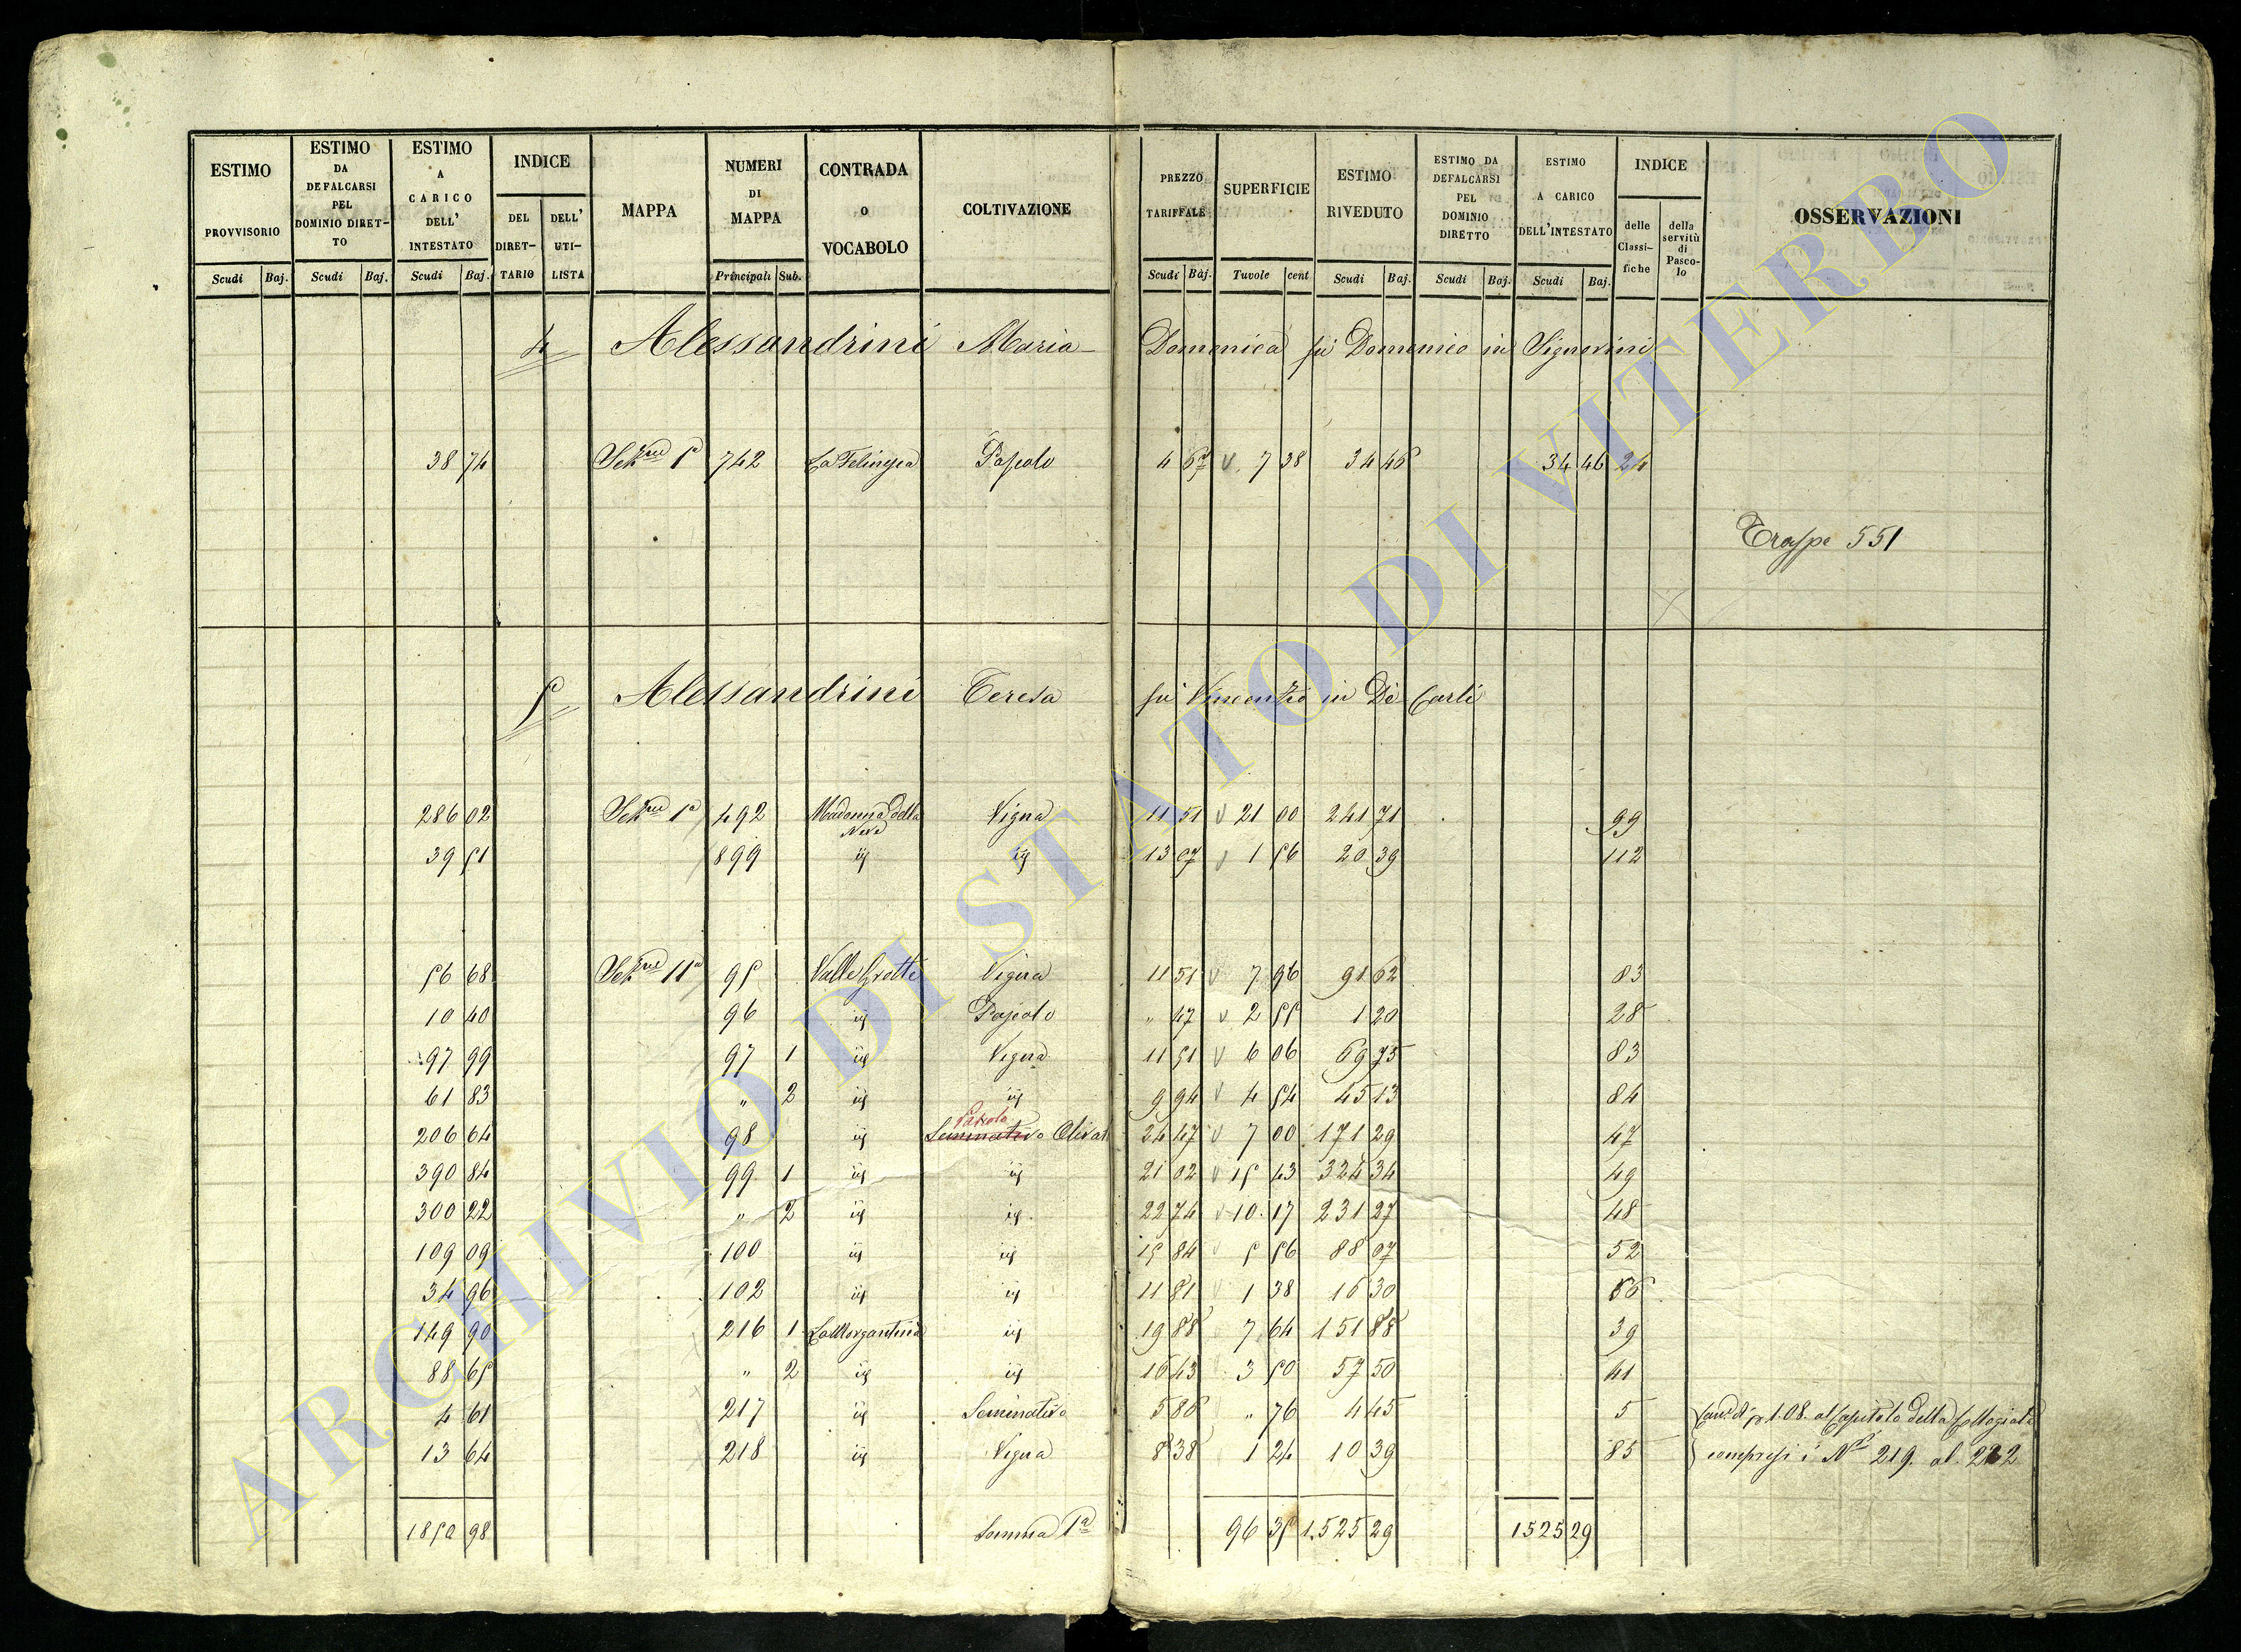 ESTIMO PROVVISORIO Scudi Baj. ESTIMO DA DEFALCARSI PEL DOMINIO DIRETTO Scudi Baj. ESTIMO A CARICO DELL' INTESTATO Scudi Baj. INDICE DEL DIRETTARIO DELL' UTILISTA MAPPA NUMERI DI MAPPA Principali Sub. CONTRADA O VOCABOLO COLTIVAZIONE PREZZO TARIFFALE Scudi Baj. SUPERFICIE Tavole cent ESTIMO RIVEDUTO Scudi Baj. ESTIMO DA DEFALCARSI PEL DOMINIO DIRETTO Scudi Baj. ESTIMO A CARICO DELL'INTESTATO Scudi Baj. INDICE delle Classifiche della servitù di Pascolo OSSERVAZIONI
4 Alessandrini Maria Domenica fù Domenico in Signorini
38 74 Sez.ne 1a 742 Pascolo 4 67 7 38 34 46 34 46 24
Traspe 551
5 Alessandrini Teresa fù Vincenzo in De Carli
286 02 Sez.ne 1a 492 Madonna della Neve Vigna 11 51 21 00 241 71 99
39 51 899 id id 13 07 1 56 20 39 112
56 68 Sez.ne 11a 95 Valle Grotte Vigna 11 51 7 96 91 62 83
10 40 96 id Pascolo " 47 2 55 1 20 28
97 99 97 1 id Vigna 11 51 6 06 69 75 83
61 83 " 2 id id 9 94 4 54 45 13 84
Pascolo
206 64 98 id Seminativo Olivato 24 47 7 00 171 29 47
390 84 99 1 id id 21 02 15 43 324 34 49
300 22 " 2 id id 22 74 10 17 231 27 48
109 09 100 id id 15 84 5 56 88 07 52
34 96 102 id id 11 81 1 38 16 30
149 90 216 1 La Morgantina id 19 88 7 64 151 88 39
88 65 " 2 id id 16 43 3 50 57 50 41
4 61 217 id Seminativo 5 86 " 76 4 45 5 1.08. al Capitolo della Collegiata
13 64 218 id Vigna 8 38 1 24 10 39 85 compresi i Ni 219. al
1850 98 Somma 1a 96 35 1525 29 1525 29
ARCHIVIO DI STATO DI VITERBO